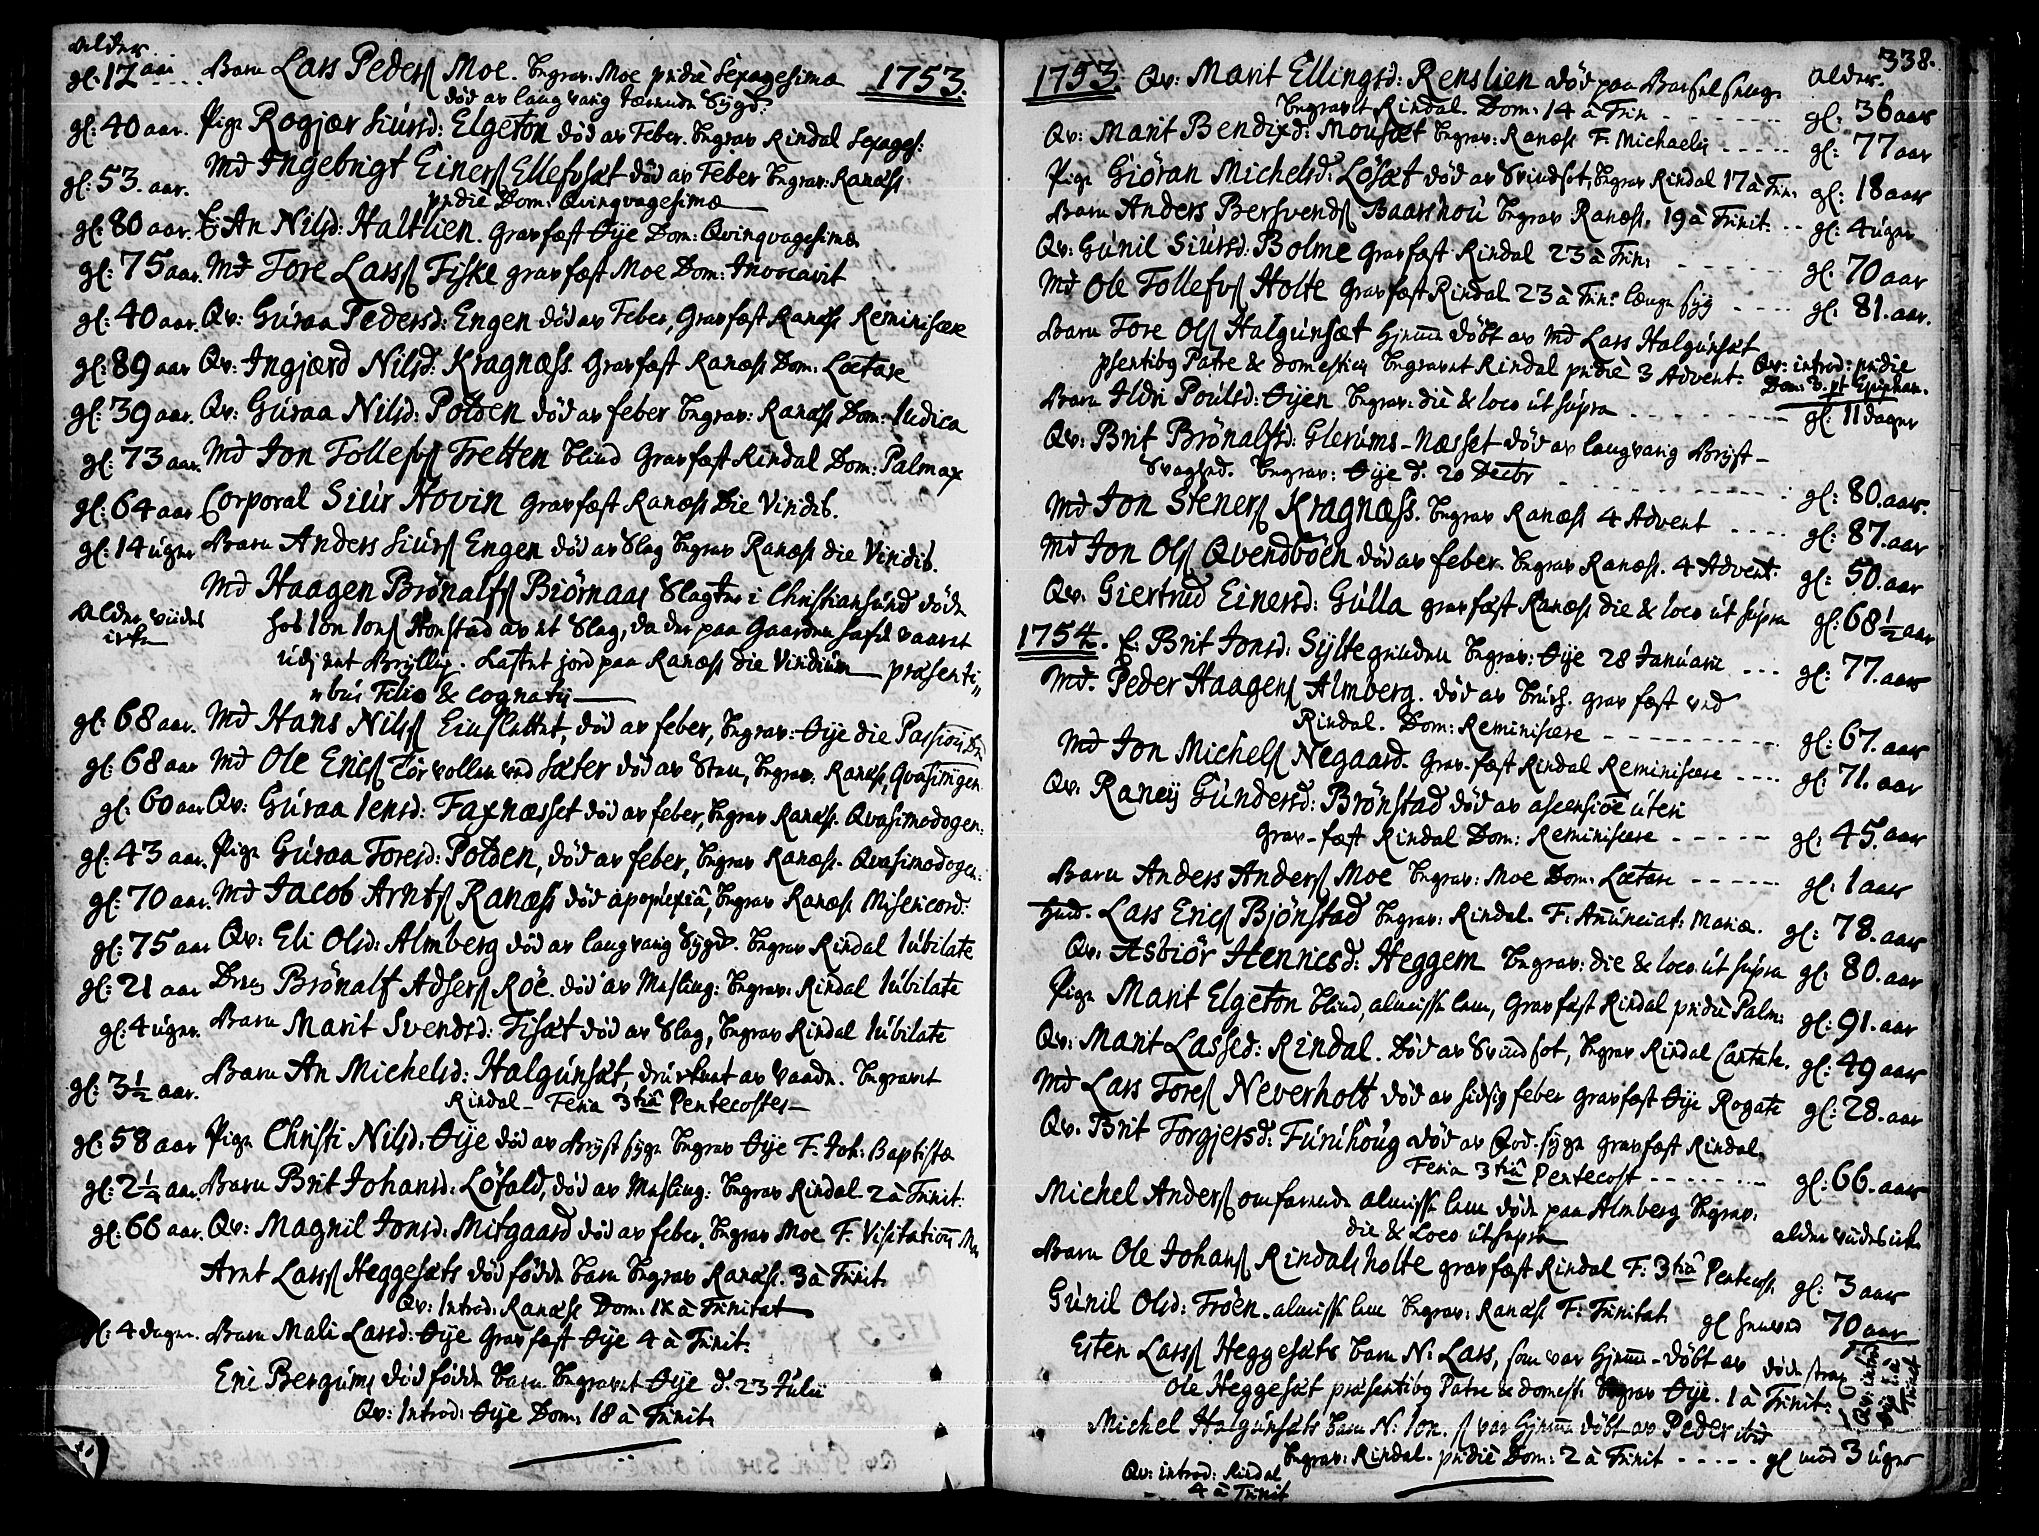 alder
gl: 17 aar Barn Lars Peders Moe. begrav: Moe pridiè Sexagesimæ 1753.
død av langvarig tærende Sygd:
gl: 40 aar. Pige Rogjær Siursd: Elgeton død av Feber. begrav Rindal Sexages:
gl: 53. aar. Md Ingebrigt Einers Ellefsæt død av Feber begrav: Ranæss
pridiè Dom: Qvinqvagesimæ
gl: 80 aar. E: An Nilsd: Haltlien. gravfæst Øye Dom: Qvinqvagesimæ
gl: 75 aar. Md Tore Larss Fiske gravfæst Moe Dom: Invocavit
gl: 40 aar. Qv: Guraa Pedersd: Engen død av Feber, gravfæst Ranæss Reminiscere
gl: 89 aar Qv: Ingjærd Nilsd: Kragnæss. gravfæst Ranæss Dom: Lætare
gl: 39 aar. Qv: Guraa Nilsd: Polden død av feber begrav: Ranæss Dom: Iudica
gl: 73 aar. Md Jon Tollefs Tretten blind gravfæst Rindal Dom: Palmar
gl: 64 aar Corporal Siur Hovin gravfæst Ranæss Die Viridib.
gl: 14 uger Barn Anders Siurs Engen død av Slag begrav Ranæss die Viridib.
Md Haagen Brønalfs Biørnaas Slagter i Christiansund døde
Alder vides hos Ion Ions Honstad av et Slag, da der paa Gaarden hafde vaaret
ikke udj et Bryllup. kastet jord paa Ranæss die Viridium præsenti„
„bus Filio & cognatis
gl: 68 aar. Md Hans Nilss død av feber, begrav: Øye die Passionis
gl: 68 aar Md Ole Erics ved Sæter død av Sten, begrav. Ranæss, Qvasimogen
gl: 60 aar Qv: Guraa Iensd: Faxnæsset død av feber, begrav Ranæss. Qvasimodogen:
gl: 43 aar. Pige Guraa Toresd: Polden, død av feber, begrav Ranæss. Qvasimodogen:
gl: 70 aar. Md Jacob Arnts Ranæss død apoplexiâ, begrav Ranæss Misericord:
gl: 75 aar Qv: Eli Olsd: Almberg død av langvarig Sygd. begrav Rindal Iubilate
gl: 21 aar Dreng Brønalf Adsers Røe. død av Mesling: begrav: Rindal Iubilate
gl: 4 uger. Barn Marit Svendsd: Tisæt død av Slag, begrav Rindal Iubilate
gl: 3½ aar. Barn An Michelsd: Halgunsæt, druknet av Vaade. begravet
Rindal Feria 3tia Pentecostes
gl: 58 aar Pige Christi Nilsd: Øye død av Bryst syge begrav Øye F. Joh: Baptistæ
gl: 2¼ aar. Barn Brit Johansd: Løfald, død av Mesling: begrav Rindal 2 à Trinit:
gl: 66 aar. Qv: Magnil Jonsd: Mifgaard død av feber, begrav Moe F. Visitation Mar
Arnt Larss Heggesæts død fødde barn begrav Ranæss. 3 à Trinit.
Qv: Introd: Ranæss Dom: IX à Trinitat
gl: 4 dager. Barn Mali Larsd: Øye gravfæst Øye 4 à Trinit:
Eric Bergums død fødde barn begravet Øye d. 23 Julii
Qv: Introd: Øye Dom: 18 à Trinit.
338.
1753. Qv: Marit Ellingsd: Renslien død paa Barselseng. alder.
begravet Rindal. Dom: 14 à Trin gl: 36 aar
Qv: Marit Bendixd: Mousæt begrav: Ranæss F. Michaelis gl: 77 aar
Pige Giøran Michelsd: Løsæt død av Svindsot, begrav Rindal 17 à Trin: gl: 18 aar
Barn Anders Bersvends Baarshou begrav Ranæss. 19 à Trinit. gl: 4 uger
Qv: Gunil Siursd: Bolme gravfæst Rindal 23 à Trin: gl: 70 aar
Md Ole Tollefs Holte gravfæst Rindal 23 à Trin: længe syg gl: 81. aar.
Barn Tore Ols Halgunsæt Hjemme døbt av Md Lars Halgunsæt
psentibq Patre & domesticis begravet Rindal pridiè 3 Advent: Qv: introd: pridie
Dom: 3. pt Epiphan.
Barn Ildri Poulsd: Øyen begrav: diè & loco ut supra gl: 11 dager
Qv: Brit Brønalfsd: Glerums-næsset død av langvarig Bryst-
Svaghed. begrav: Øye d. 20 Decbr gl: 80. aar.
Md Jon Steners Kragnæss. begrav Ranæss 4 Advent gl: 87. aar
Md Jon Ols Qvendbøen død av feber. begrav Ranæss. 4 Advent. gl: 50. aar
Qv. Giertrud Einersd: Gulla gravfæst Ranæss die & loco ut supra gl: 68½ aar
1754. E: Brit Jonsd: Sylte begrav: Øye 28 Januarii gl: 77. aar
Md. Peder Haagens Almberg. død av bruch. gravfæst ved
Rindal. Dom: Reminiscere gl: 67. aar
Md Jon Michels Negaard. Grav-fæst Rindal Reminiscere gl: 71. aar
Qv. Raneij Gundersd: Brønstad død av ascensiōe uteri
grav-fæst Rindal Dom: Reminiscere gl: 45. aar
Barn Anders Anders Moe begrav: Moe Dom: Lætare gl: 1 aar
Lars Erics Bjønstad begrav: Rindal. F: Añunciat: Mariæ. gl: 78. aar
Qv. Asbiør Hennicsd: Heggem begrav: die & loco ut supra gl: 80. aar
Pige Marit Elgeton blind, almisse lem, Gravfæst Rindal pridiè Palm: gl: 91. aar
Qv: Marit Lassed: Rindal. død av Svindsot, begrav Rindal Cantate. gl: 49 aar
Md Lars Tores Neverholt død av hidsig feber gravfæst Øye Rogate gl: 28. aar
Qv: Brit Torgjersd: Funihoug død av syge gravfæst Rindal.
Feria 3tia Pentecost gl: 66. aar
Michel Anders omfarende almisse lem døde paa Almberg begrav.
die & Loco ut supra alder vides ikke
Barn Ole Johans Rindalsholte gravfæst Rindal F: 3tia Pentecost gl: 3 aar
Gunil Olsd: Trøen. almisse lem begrav: Ranæss F: Trinitat gl henved 70 aar
Esten Larss Heggesæts barn N: Lars, som var Hjemme-døbt av døde strax
Ole Heggesæt præsentibq Patre & domest: begrav Øye. 1 à Trinit:
Michel Halgunsæts barn N: Ion. var Hjemme døbt av Peder ibid
begrav: Rindal. pridiè Dom: 2 à Trinit gl mod 3 uger
Qv: introd: Rindal
4 à Trinit